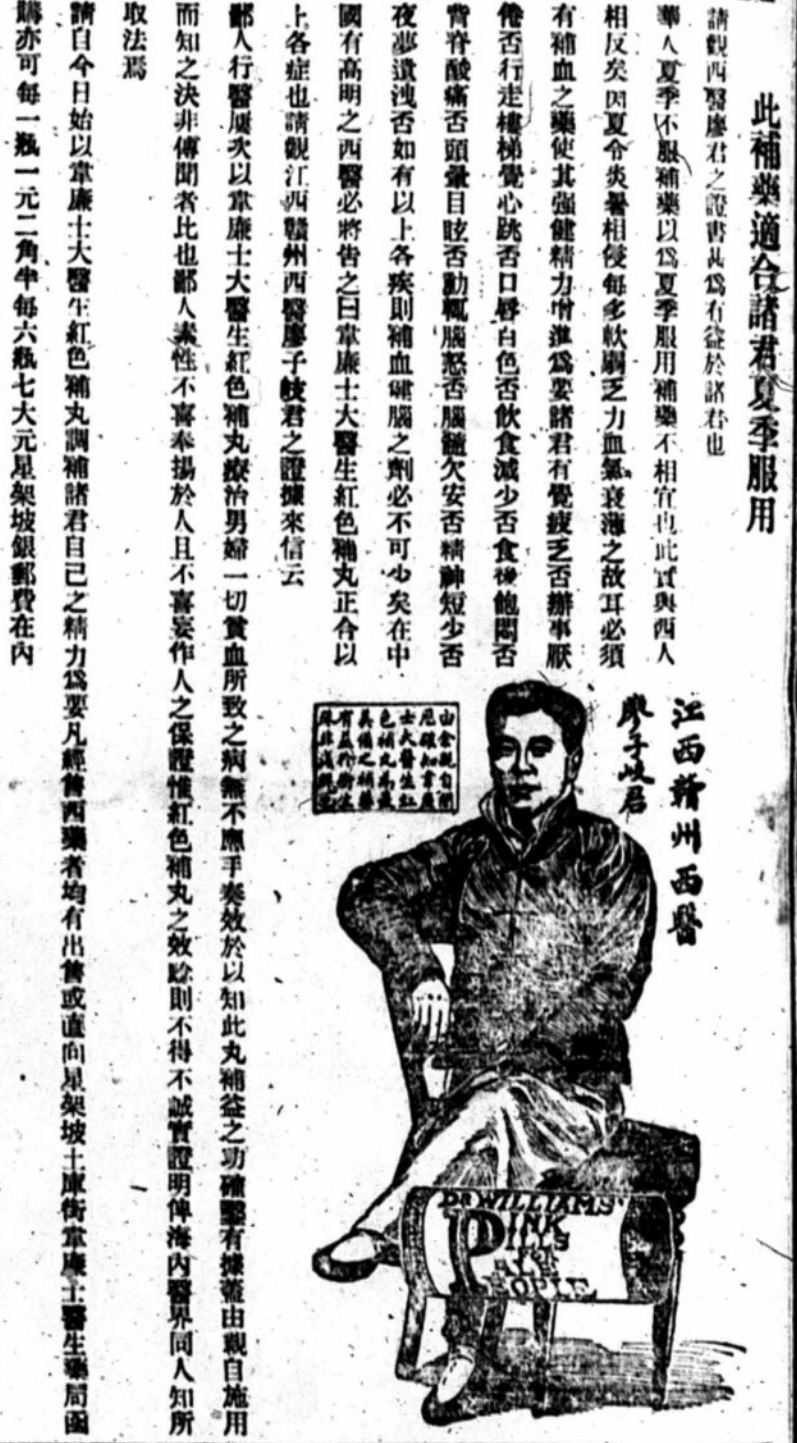 此補藥適合諸君夏季服用
請觀西醫廖君之證書其爲有益於諸君也
華人夏季不服補藥以爲夏季服用補藥不相宜也此實與西人
相反矣因夏令炎暑相侵每多軟弱乏力血氣衰薄之故耳必須
有補血之藥使其强健精力增進爲要諸君有覺疲乏否辦事厭
倦否行走樓梯覺心跳否口唇白色否飲食減少否食後飽悶否
背脊酸痛否頭暈目眩否動輒腦怒否腦髓欠安否精神短少否
夜夢遺洩否如有以上各疾則補血健腦之劑必不可少矣在中
國有高明之西醫必將告之曰韋廉士大醫生紅色補丸正合以
上各症也請觀江西贛州西醫廖子岐君之證據來信云
鄙人行醫屢次以韋廉士大醫生紅色補丸療治男婦一切貧血所致之病無不應手奏效於以知此丸補益之功確鑿有據蓋由親自施用
而知之決非傳聞者比也鄙人素性不喜奉揚於人且不喜妄作人之保證惟紅色補丸之效騐則不得不誠實證明俾海內醫界同人知所
取法焉
請自今日始以韋廉士大醫生紅色補丸調補諸君自己之精力爲要凡經售西藥者均有出售或直向星架坡土庫街韋廉士醫生藥局函
購亦可每一瓶一元二角半每六瓶七大元星架坡銀郵費在內
江西贛州西醫
廖子岐君
由余親自閱
歷確知韋廉
士大醫生紅
色補丸爲最
美備之補藥
有益於衛生
DR WILLIAMS'
PINK
PILLS
FOR
PEOPLE